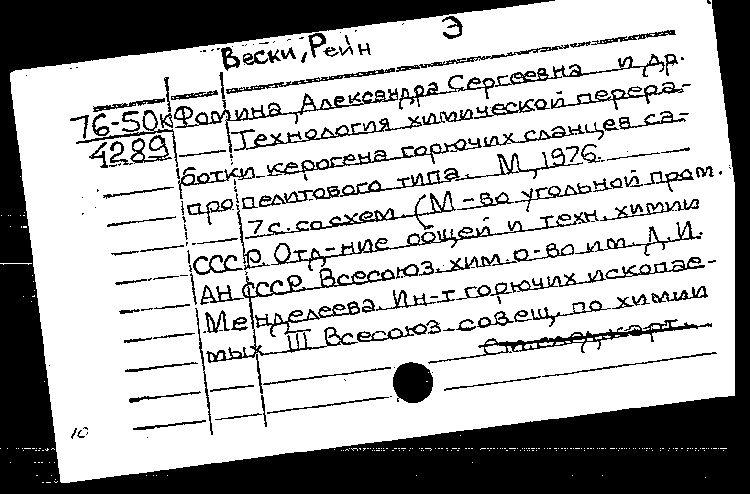 Вески, Рейн Э
76-50к Фомина, Александра Сергеевна и др.
4289 Технология химической перера-
ботки керогена горючих сланцев са-
пропелитового типа. М, 1976.
7с. со схем. (М-во угольной пром.
СССР. Отд-ние общей и техн. химии
АН СССР. Всесоюз. хим. о-во им. Д.И.
Менделеева. Ин-т горючих ископае-
мых III Всесоюз. совещ. по химии
См. след. карт.
10